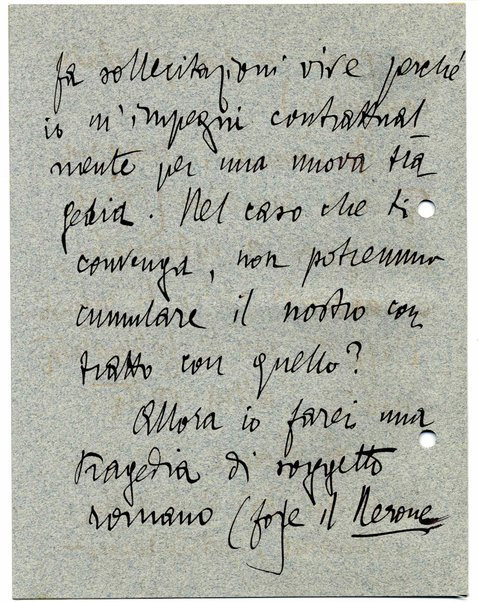 fa sollecitazioni vive perché
io m'impegni contrattual
mente per una nuova tra
gedia. Nel caso che ti
convenga, non potremmo
cumulare il nostro con
tratto con quello?
Allora io farei una
tragedia di soggetto
romano (forse il Nerone